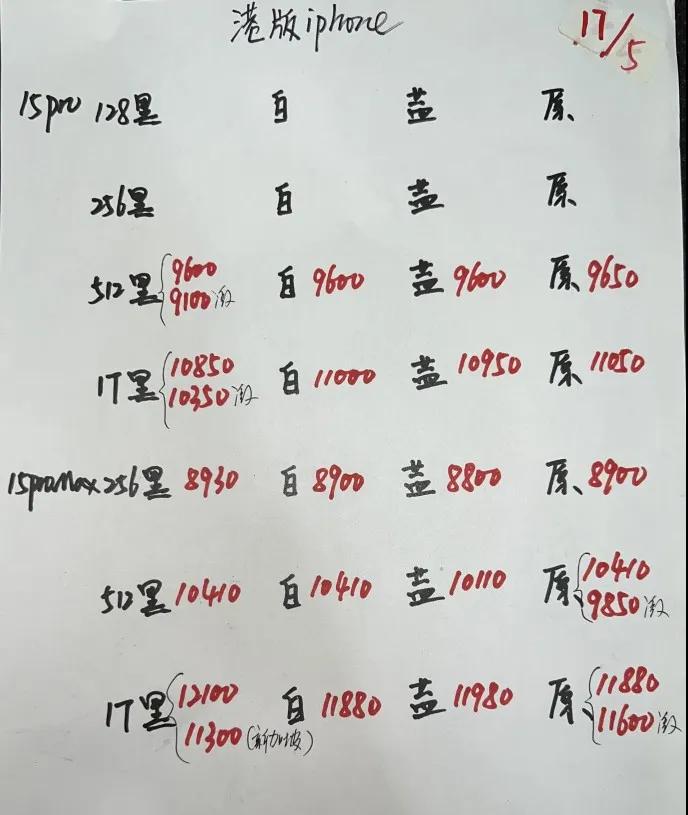 港版iphone
17/5
15pro 128黑 白 蓝 原
256黑 白 蓝 原
512黑 9600 白 9600 蓝 9600 原 9650
9100激
1T黑 10850 白 11000 蓝 10950 原 11050
10350激
15proMax 256黑 8930 白 8900 蓝 8800 原 8900
512黑 10410 白 10410 蓝 10110 原 10410
9850激
1T黑 12100 白 11880 蓝 11980 原 11880
11300(新加坡) 11600激